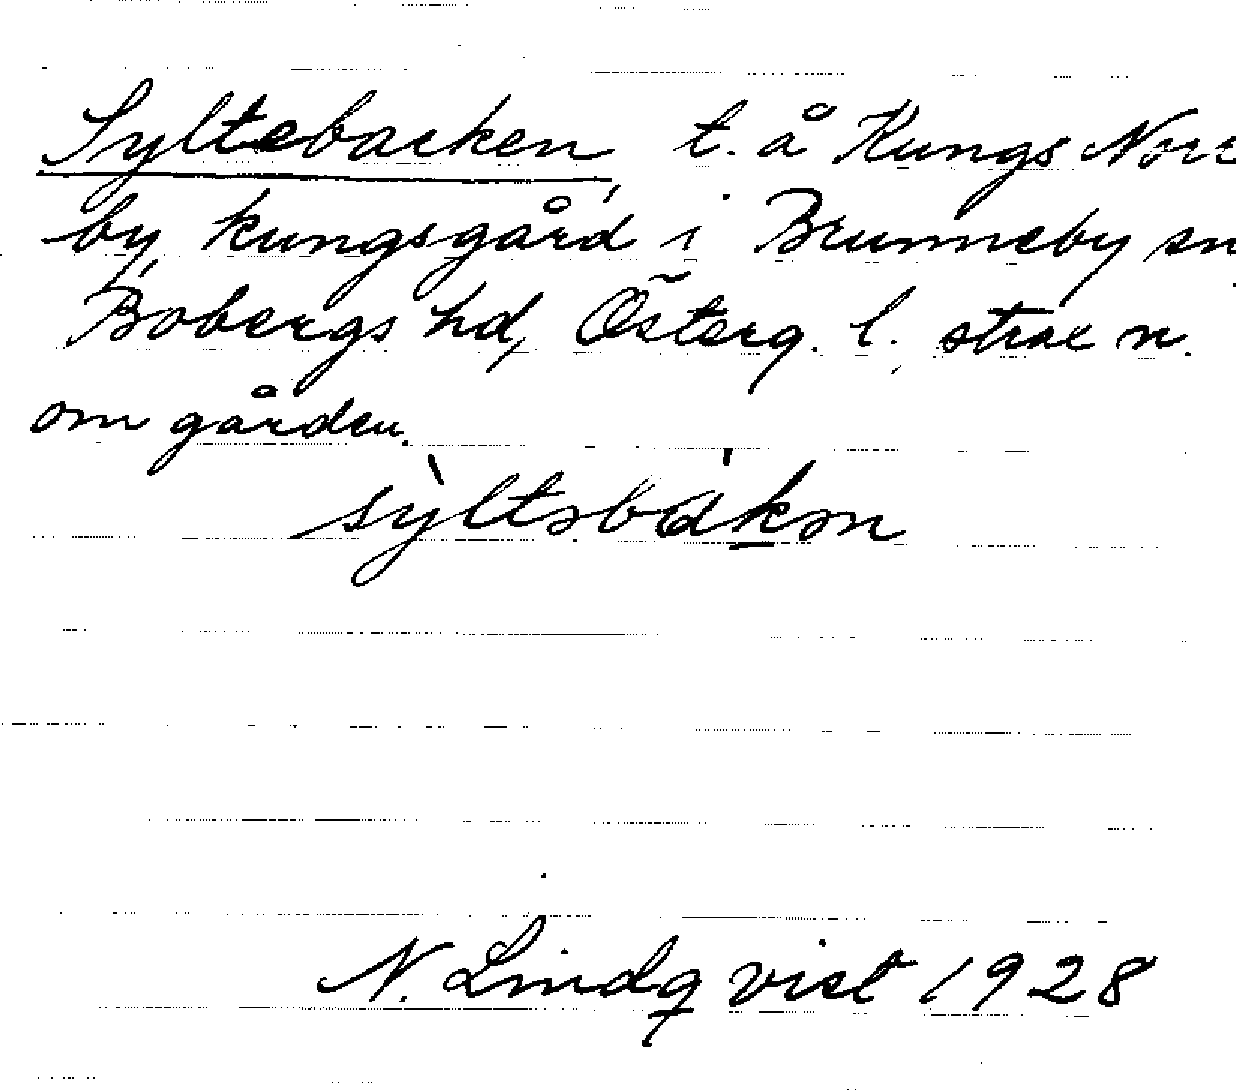 Syltebacken, t. å Kungs Norr
by kungsgård i Brunneby sn,
Bobergs hd, Österg. l., strax n.
om gården.
sỳltəbákən
N. Lindqvist 1928